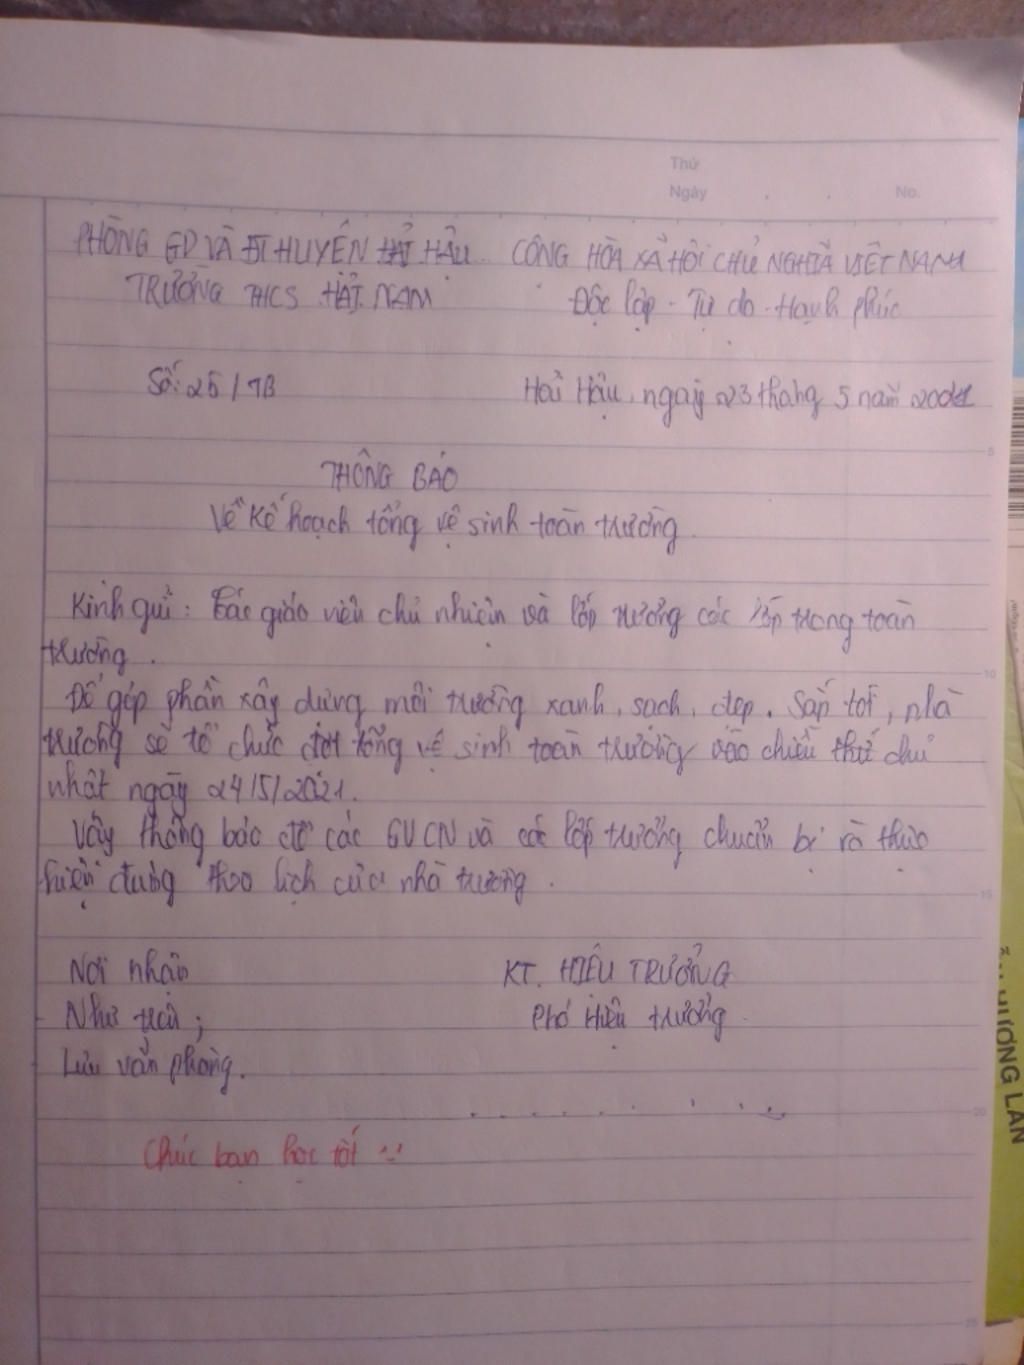 Thứ
Ngày . . No.
PHÒNG GD VÀ ĐT HUYỆN HẢI HẬU CỘNG HÒA XÃ HỘI CHỦ NGHĨA VIỆT NAM
TRƯỜNG THCS HẢI NAM Độc lập - Tự do - Hạnh phúc
Số: 25 / TB Hải Hậu, ngày 23 tháng 5 năm
THÔNG BÁO
Về kế hoạch tổng vệ sinh toàn trường.
Kính gửi: Các giáo viên chủ nhiệm và lớp trưởng các lớp trong toàn
trường.
Để góp phần xây dựng môi trường xanh, sạch, đẹp. Sắp tới, nhà
trường sẽ tổ chức đợt tổng vệ sinh toàn trường vào chiều thứ chủ
nhật ngày 24/5/2021.
Vậy thông báo để các GVCN và các lớp trưởng chuẩn bị và thực
hiện đúng theo lịch của nhà trường.
Nơi nhận KT. HIỆU TRƯỞNG
- Như trên; Phó Hiệu trưởng
Lưu văn phòng.
Chúc bạn học tốt
HƯƠNG LAN
5
10
15
20
25